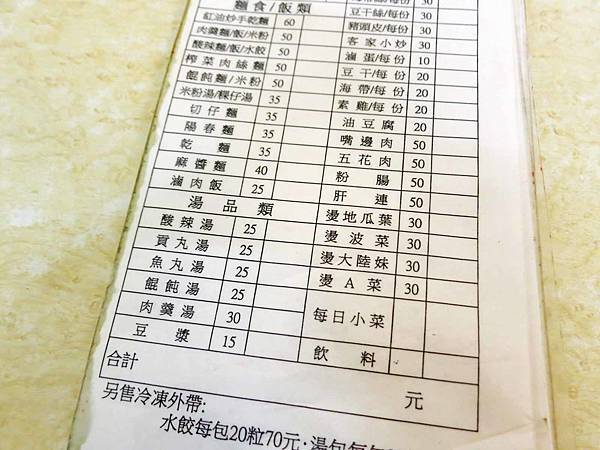 麵食/飯類
紅油炒手乾麵 60
肉羹麵/飯/米粉 50
酸辣麵/飯/水餃 50
榨菜肉絲麵 50
餛飩麵/米粉 50
米粉湯/粿仔湯 35
切仔麵 35
陽春麵 35
乾麵 35
麻醬麵 40
滷肉飯 25
湯品類
酸辣湯 25
貢丸湯 25
魚丸湯 25
餛飩湯 25
肉羹湯 30
豆漿 15
30
豆干絲/每份 30
豬頭皮/每份 30
客家小炒 30
滷蛋/每份 10
豆干/每份 20
海帶/每份 20
素雞/每份 20
油豆腐 20
嘴邊肉 50
五花肉 50
粉腸 50
肝連 50
燙地瓜葉 30
燙波菜 30
燙大陸妹 30
燙A菜 30
每日小菜
飲料
合計 元
另售冷凍外帶:
水餃每包20粒70元·湯包每